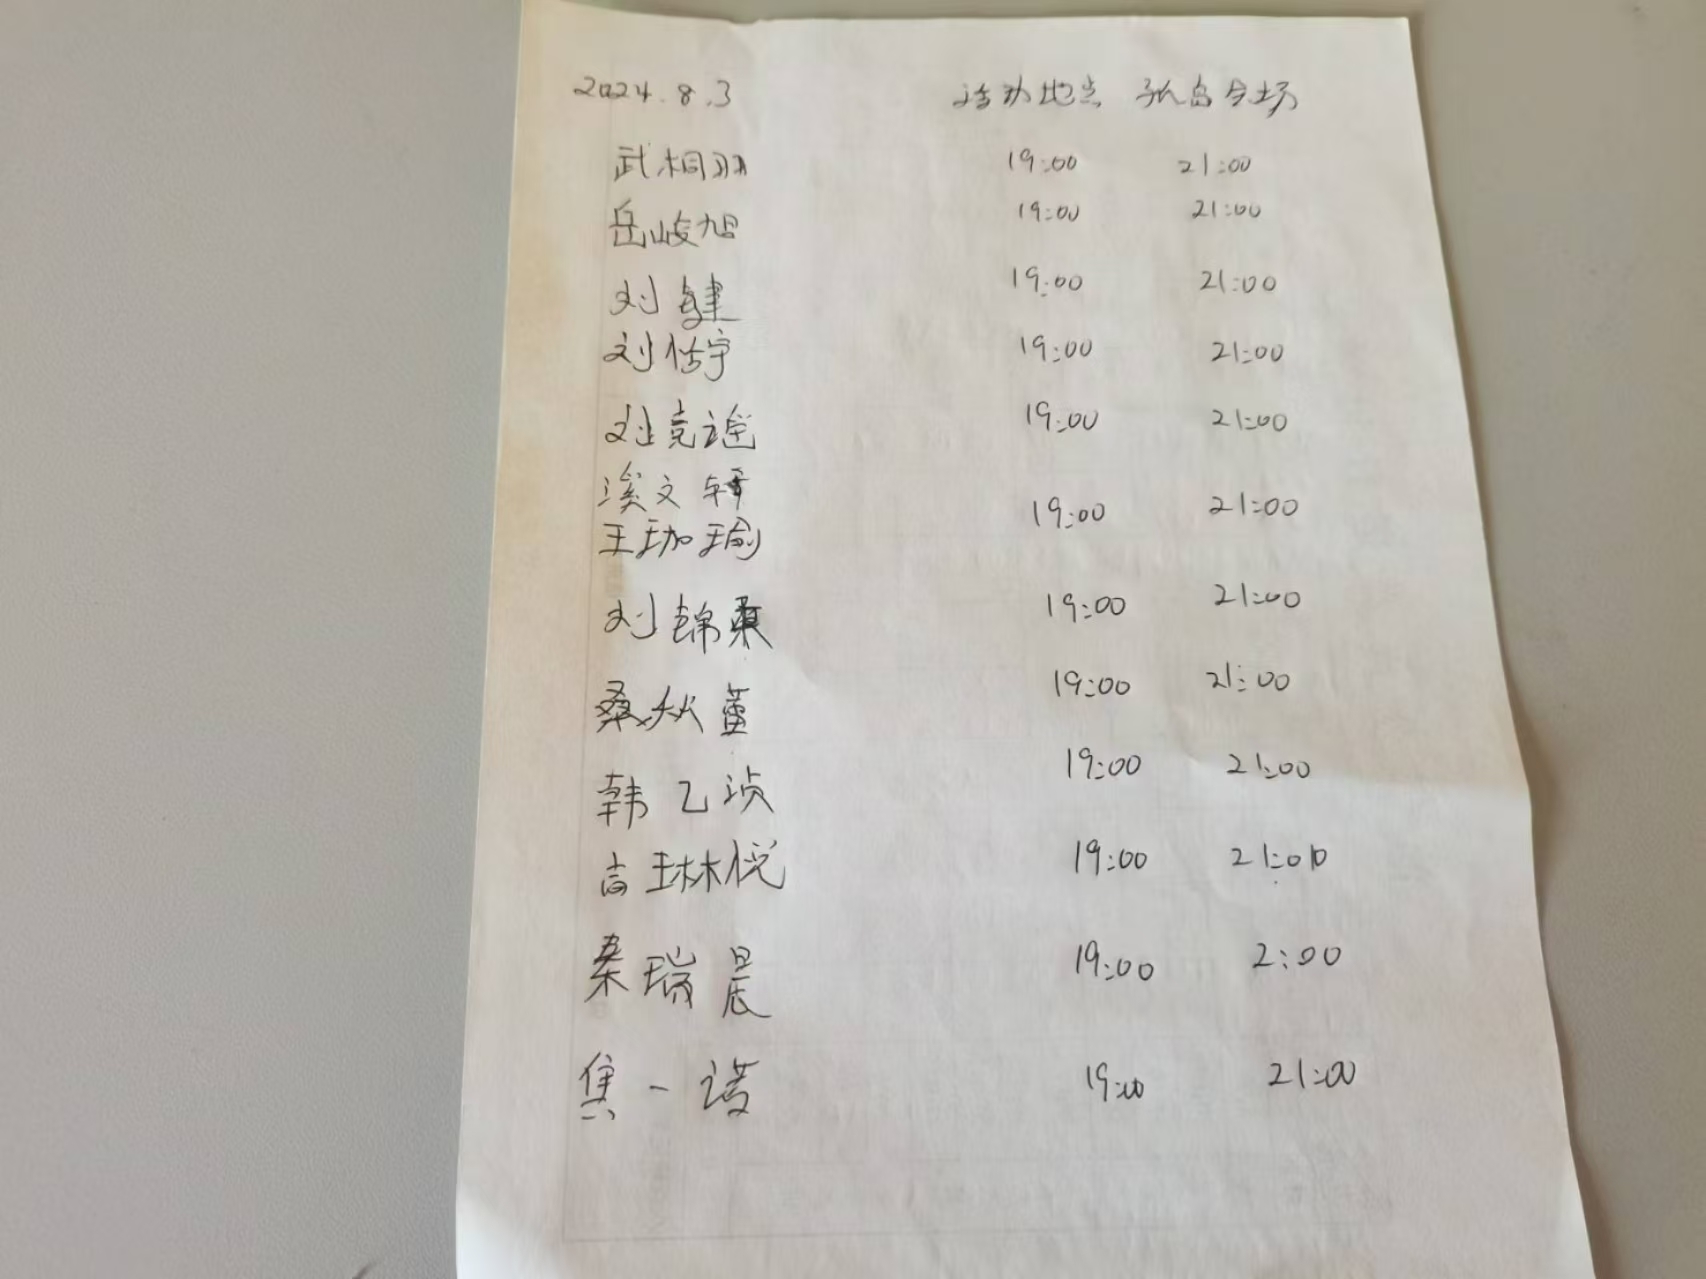 2024.8.3 活动地点 孤岛会场
武桐羽 19:00 21:00
岳峻旭 19:00 21:00
刘健 19:00 21:00
刘恬宇 19:00 21:00
刘竞谣 19:00 21:00
文轩
19:00 21:00
王珈瑜
刘锦桑 19:00 21:00
桑秋蕾 19:00 21:00
韩乙浈 19:00 21:00
吉琳悦 19:00 21:00
秦瑞晨 19:00 2:00
焦一诺 19:00 21:00